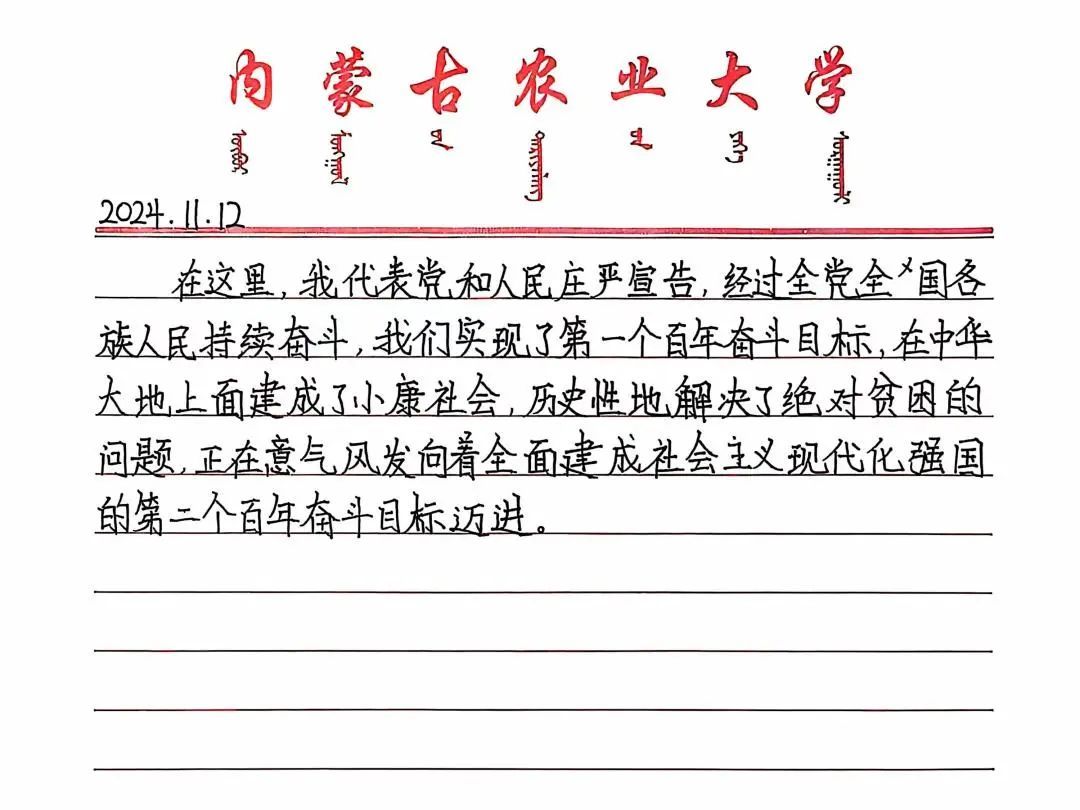 内蒙古农业大学
2024.11.12
在这里,我代表党和人民庄严宣告,经过全党全国各
族人民持续奋斗,我们实现了第一个百年奋斗目标,在中华
大地上面建成了小康社会,历史性地解决了绝对贫困的
问题,正在意气风发向着全面建成社会主义现代化强国
的第二个百年奋斗目标迈进。